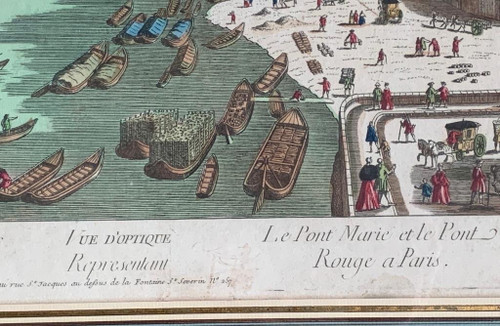 VÜE D'OPTIQUE
Representant
Le Pont Marie et le Pont
Rouge a Paris.
rue St. Jacques au dessus de la Fontaine St. Severin No.